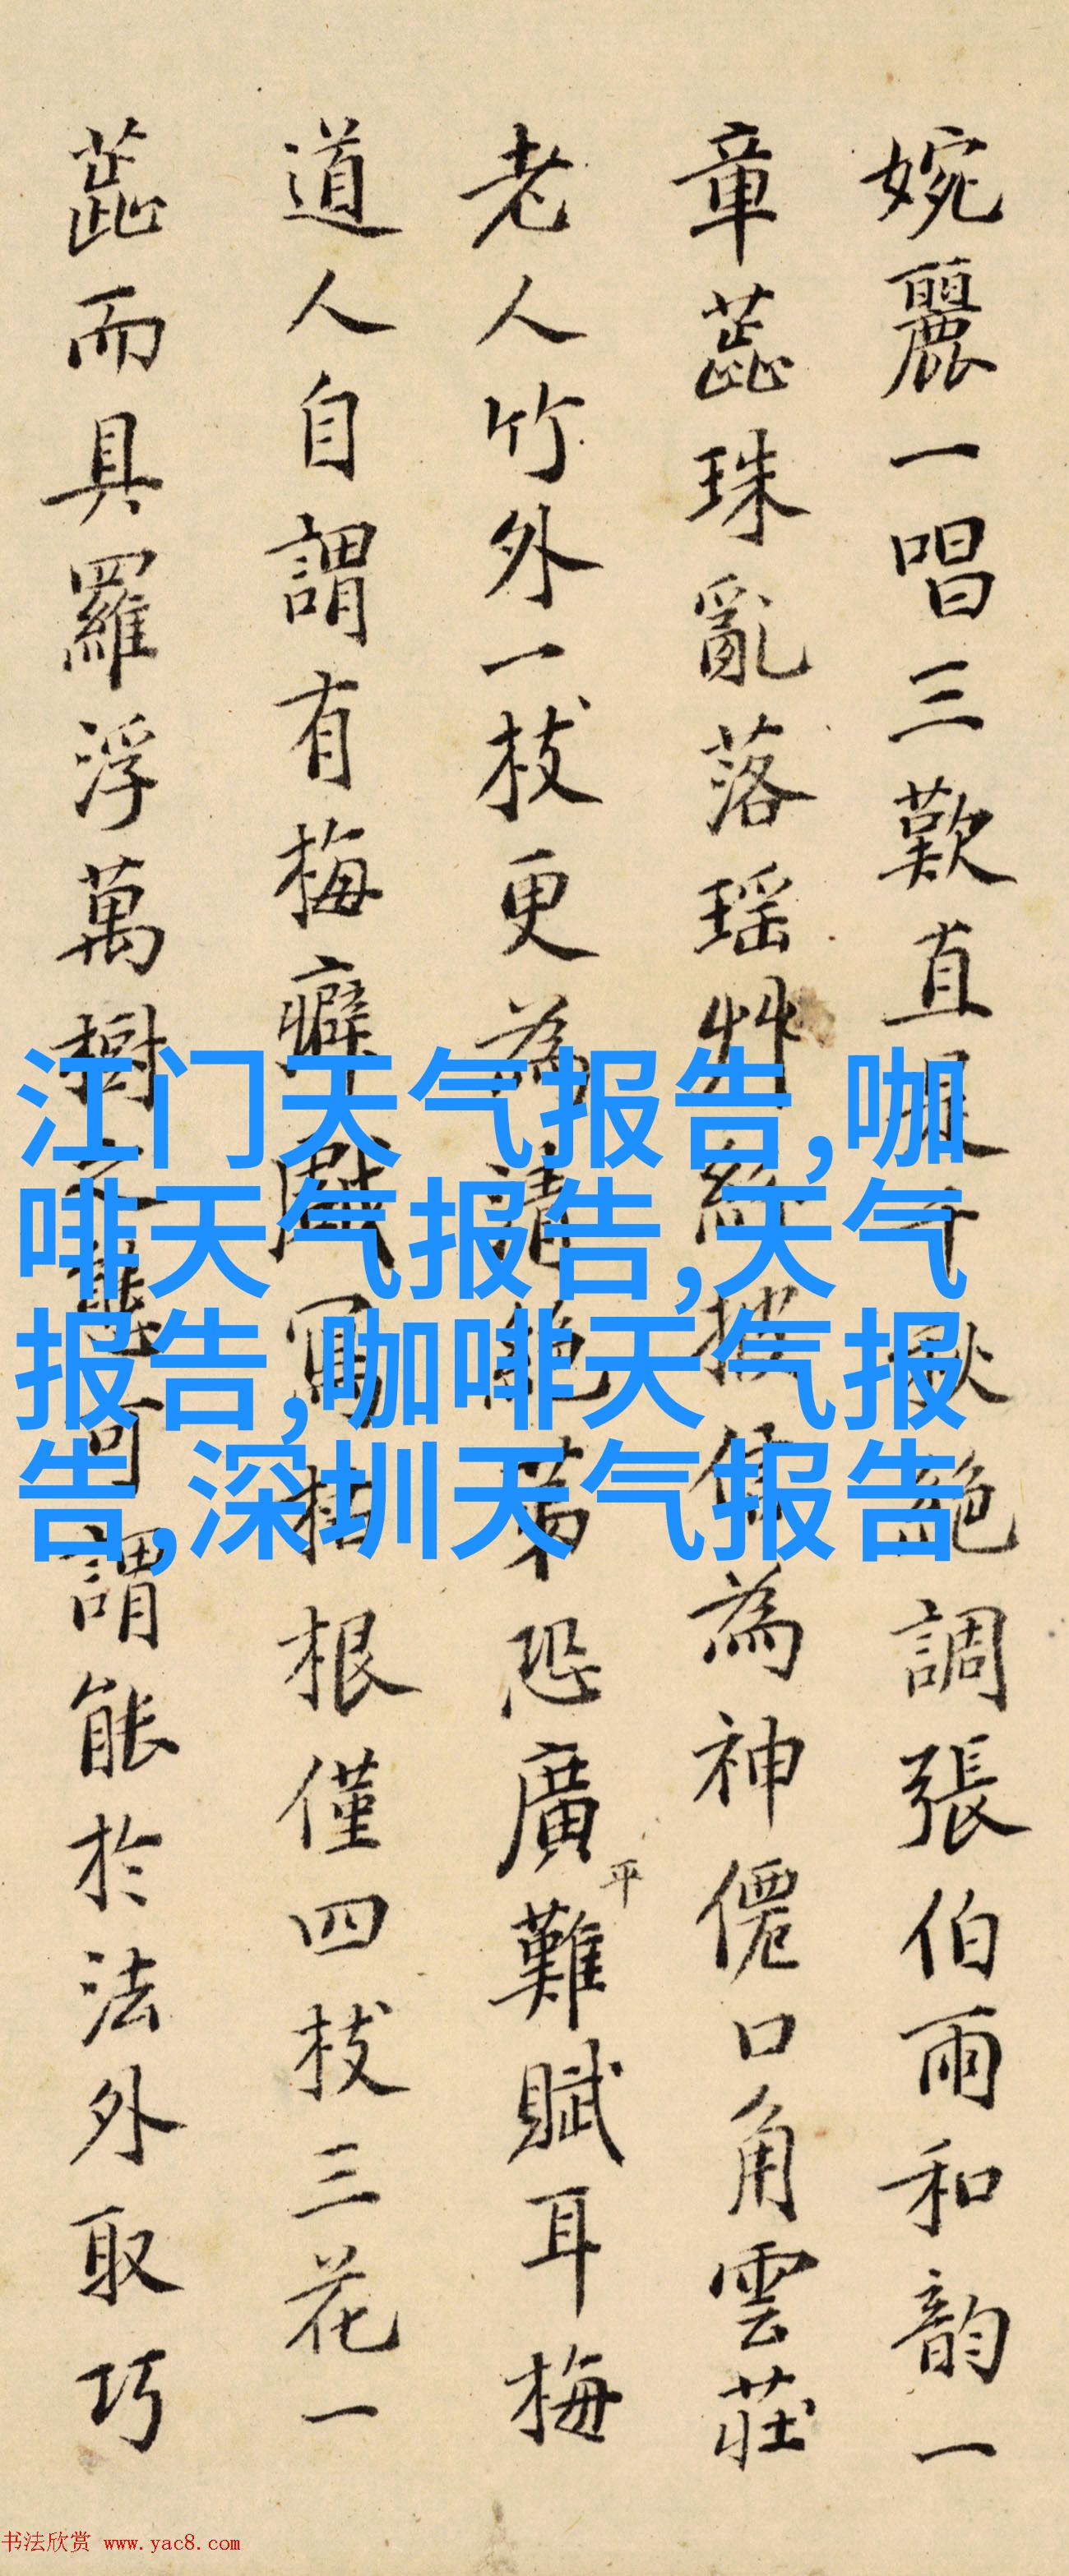 婉麗一唱三歎直是千秋絶調張伯雨和韵一
章蕋珠亂落瑶艸為神僊口角雲莊
老人竹外一枝更為清絶苐恐廣平難賦耳梅
道人自謂有梅癖寫枯根僅四枝三花一
蕋而具羅浮萬樹可謂能於法外取巧
江门天气报告,咖
啡天气报告,天气
报告,咖啡天气报
告,深圳天气报告
书法欣赏 www.yac8.com